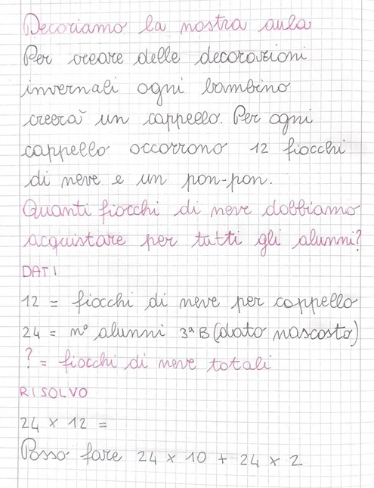 Decoriamo la nostra aula
Per creare delle decorazioni
invernali ogni bambino
creerà un cappello. Per ogni
cappello occorrono 12 fiocchi
di neve e un pon-pon.
Quanti fiocchi di neve dobbiamo
acquistare per tutti gli alunni?
DATI
12 = fiocchi di neve per cappello
24 = n° alunni 3ªB (dato nascosto)
? = fiocchi di neve totali
RISOLVO
24 × 12 =
Posso fare 24 × 10 + 24 × 2